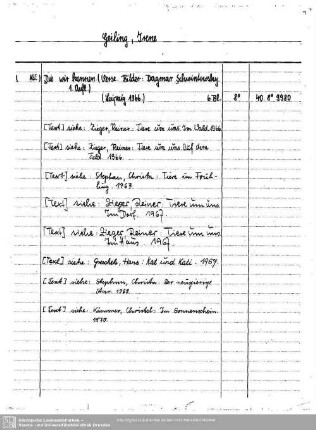 Geiling, Irene
1. Die wir kennen (Verse. Bilder: Dagmar
1. Aufl.)
(Leipzig 1966) 6 Bl. 8° 40. 8° 9980
[Text] siehe: Zieger, Reiner: Tiere um uns. Im Wald. 1966
[Text] siehe: Zieger, Reiner: Tiere um uns. Auf dem
Feld. 1966.
[Text] siehe: Stephan, Christa: Tiere im Früh-
ling. 1967.
[Text] siehe: Zieger, Reiner: Tiere um uns
Im Dorf. 1967.
[Text] siehe: Zieger, Reiner: Tiere um uns
Im Haus. 1967.
[Text] siehe: Hans: Kat und Kati. 1967.
[Text] siehe: Stephan, Christa: Der neugierige
1968.
[Text] siehe: Kümmer, Christel: Im Sonnenschein.
1970.